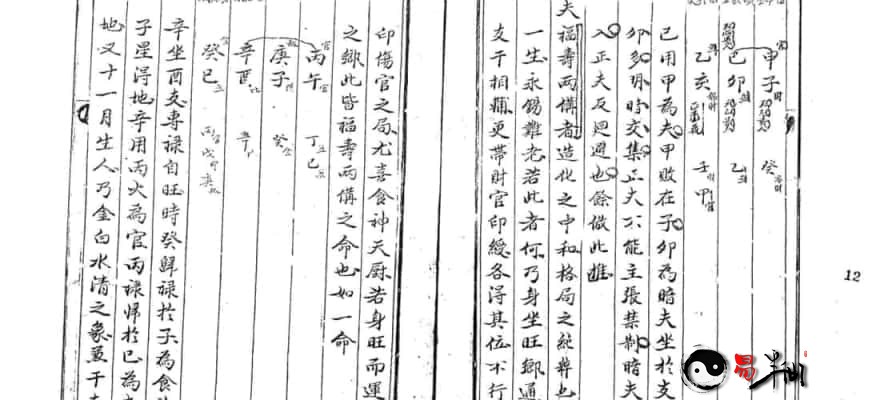 甲子 癸
己卯 乙
乙亥 壬甲
己用甲為夫甲敗在子卯為暗夫坐於支
卯多明暗交集正夫不能主張禁制暗夫
入正夫反迴避也餘倣此推
夫福壽兩備者造化之中和格局之純粹也
一生永錫難老若此者何乃身坐旺鄉通
支干相稱更帶財官印綬各得其位不行
12
印傷官之局尤喜食神天厨若身旺而運
之鄉此皆福壽兩備之命也如一命
丙午 丁己
庚子 癸
辛酉 辛
癸巳 丙戊庚
辛坐酉支專祿自旺時癸歸祿於子為食
子星得地辛用丙火為官丙祿歸於巳為
地又十一月生人乃金白水清之象
易半仙